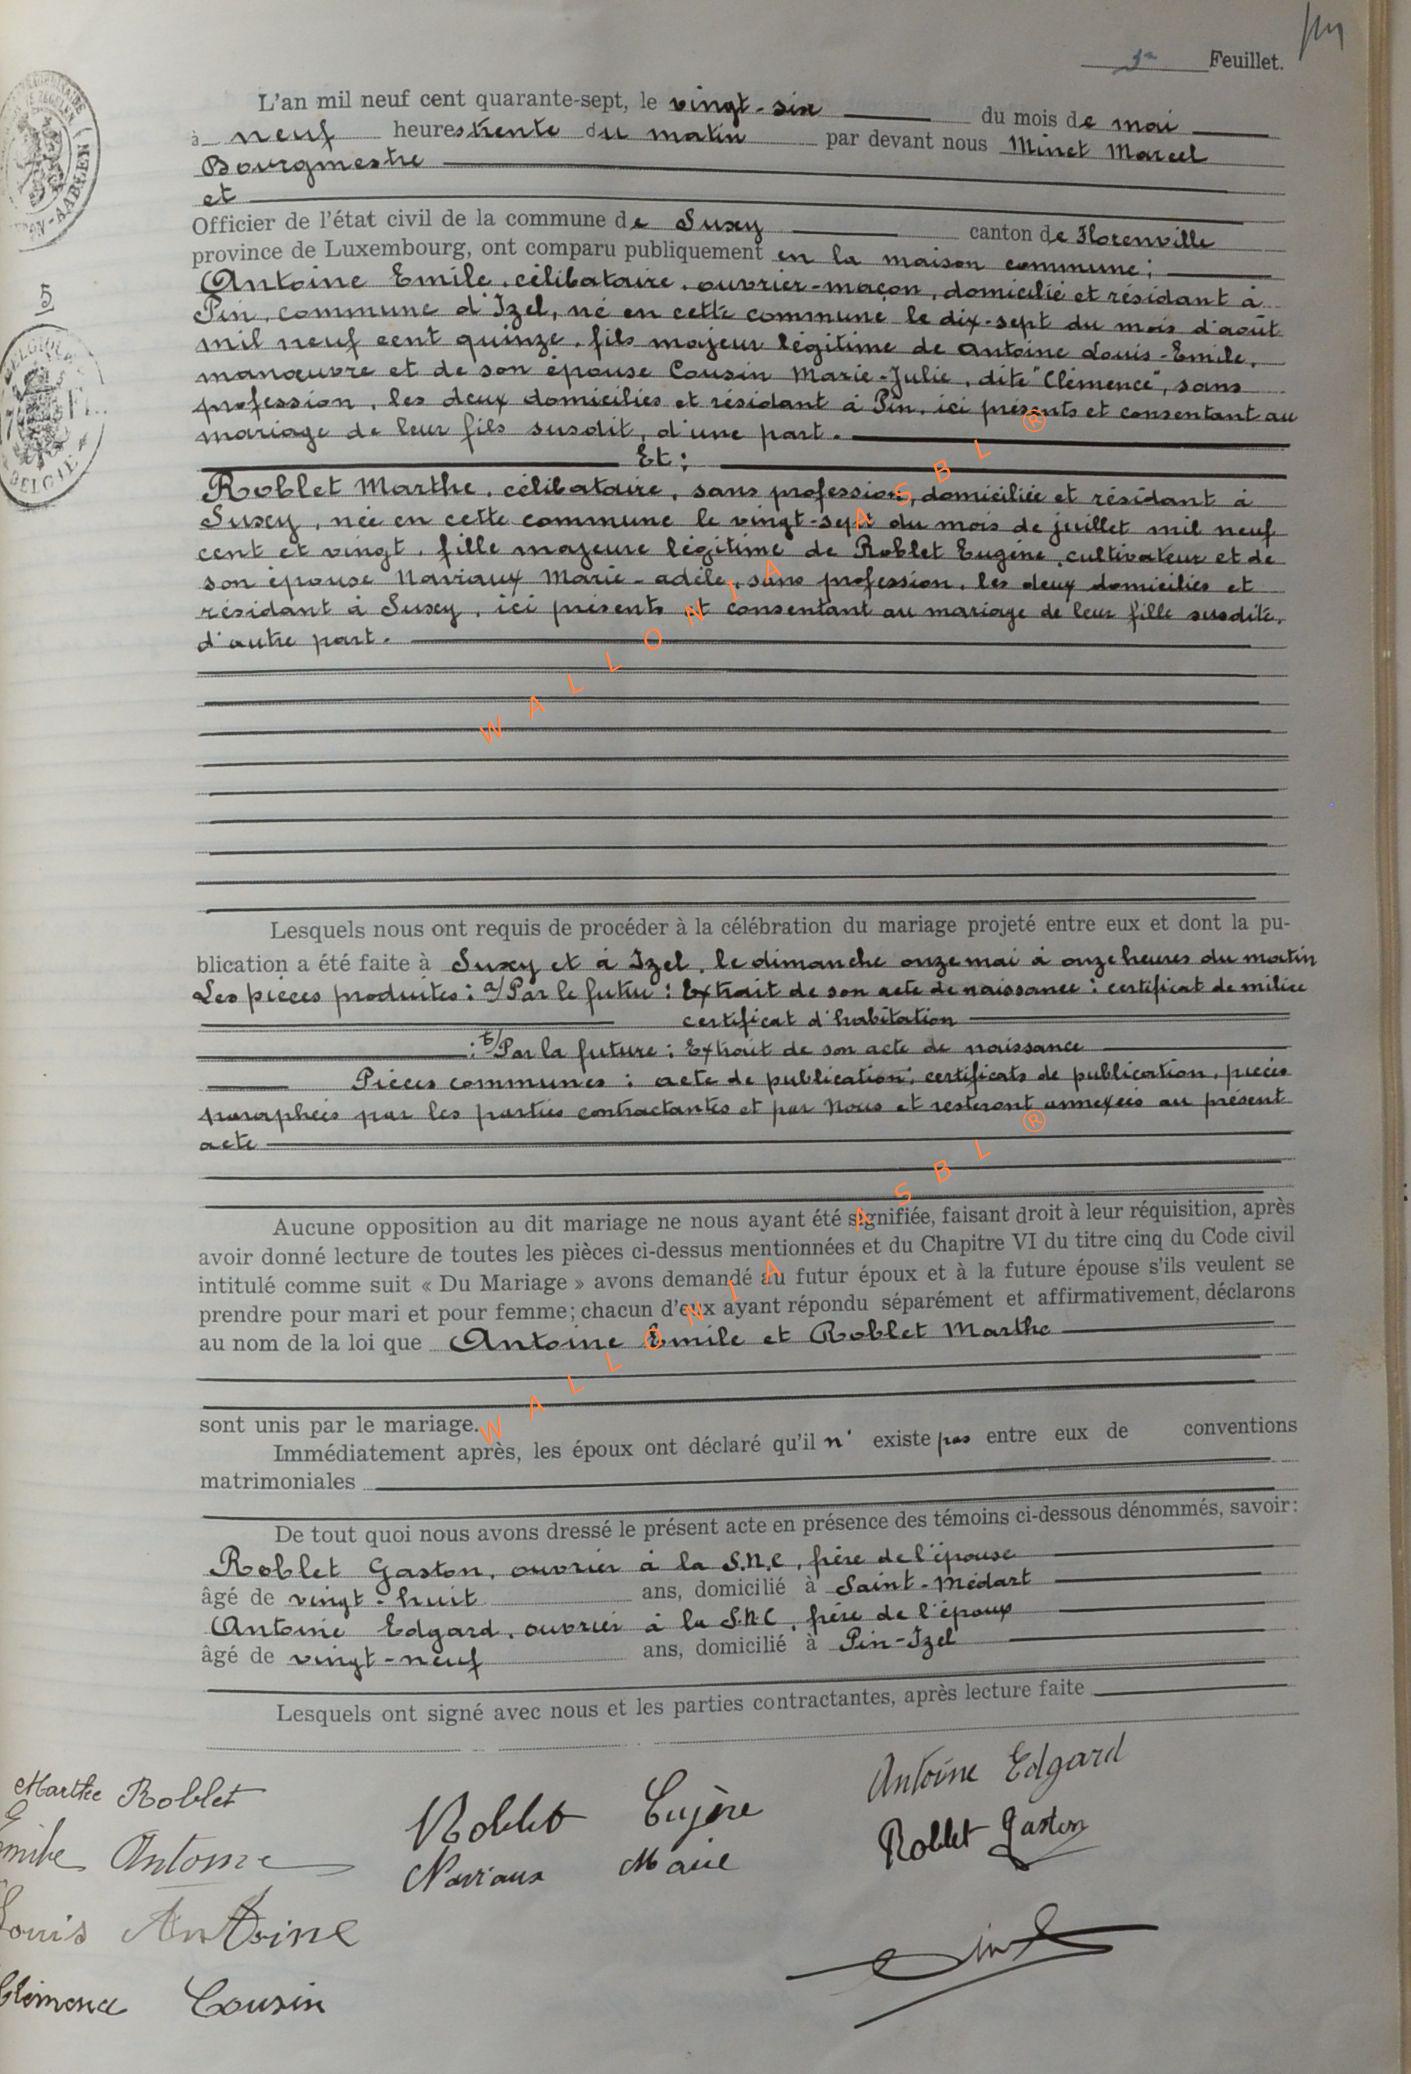 5e Feuillet.
L'an mil neuf cent quarante-sept, le vingt-six du mois de mai
à neuf heures trente du matin par devant nous Minet Marcel
Bourgmestre
et
Officier de l'état civil de la commune de Suxy canton de Florenville
province de Luxembourg, ont comparu publiquement en la maison commune;
Antoine Emile, célibataire, ouvrier-maçon, domicilié et résidant à
Pin, commune d'Izel, né en cette commune le dix-sept du mois d'août
mil neuf cent quinze, fils majeur légitime de Antoine Louis-Emile,
manœuvre et de son épouse Cousin Marie-Julie, dite "Clémence", sans
profession, les deux domiciliés et résidant à Pin, ici présents et consentant au
mariage de leur fils susdit, d'une part.
Et:
Roblet Marthe, célibataire, sans profession, domiciliée et résidant à
Suxy, née en cette commune le vingt-sept du mois de juillet mil neuf
cent et vingt, fille majeure légitime de Roblet Eugène, cultivateur et de
son épouse Naviaux Marie-adèle, sans profession, les deux domiciliés et
résidant à Suxy, ici présents et consentant au mariage de leur fille susdite,
d'autre part.
WALLONIA ASBL ®
Lesquels nous ont requis de procéder à la célébration du mariage projeté entre eux et dont la pu-
blication a été faite à Suxy et à Izel, le dimanche onze mai à onze heures du matin
Les pièces produites: a/ Par le futur: Extrait de son acte de naissance: certificat de milice
certificat d'habitation
: b/ Par la future: Extrait de son acte de naissance
Pièces communes: acte de publication; certificats de publication, pièces
paraphées par les parties contractantes et par Nous et resteront annexées au présent
acte
Aucune opposition au dit mariage ne nous ayant été signifiée, faisant droit à leur réquisition, après
avoir donné lecture de toutes les pièces ci-dessus mentionnées et du Chapitre VI du titre cinq du Code civil
intitulé comme suit « Du Mariage » avons demandé au futur époux et à la future épouse s'ils veulent se
prendre pour mari et pour femme; chacun d'eux ayant répondu séparément et affirmativement, déclarons
au nom de la loi que Antoine Emile et Roblet Marthe
WALLONIA ASBL ®
sont unis par le mariage.
Immédiatement après, les époux ont déclaré qu'il n' existe pas entre eux de conventions
matrimoniales
De tout quoi nous avons dressé le présent acte en présence des témoins ci-dessous dénommés, savoir:
Roblet Gaston, ouvrier à la S.N.C, frère de l'épouse
âgé de vingt-huit ans, domicilié à Saint-Médart
Antoine Edgard, ouvrier à la S.N.C, frère de l'époux
âgé de vingt-neuf ans, domicilié à Pin-Izel
Lesquels ont signé avec nous et les parties contractantes, après lecture faite
Marthe Roblet
Emile Antoine
Louis Antoine
Clémence Cousin
Roblet Eugène
Naviaux Marie
Antoine Edgard
Roblet Gaston
5
BELGIQUE
BELGIE